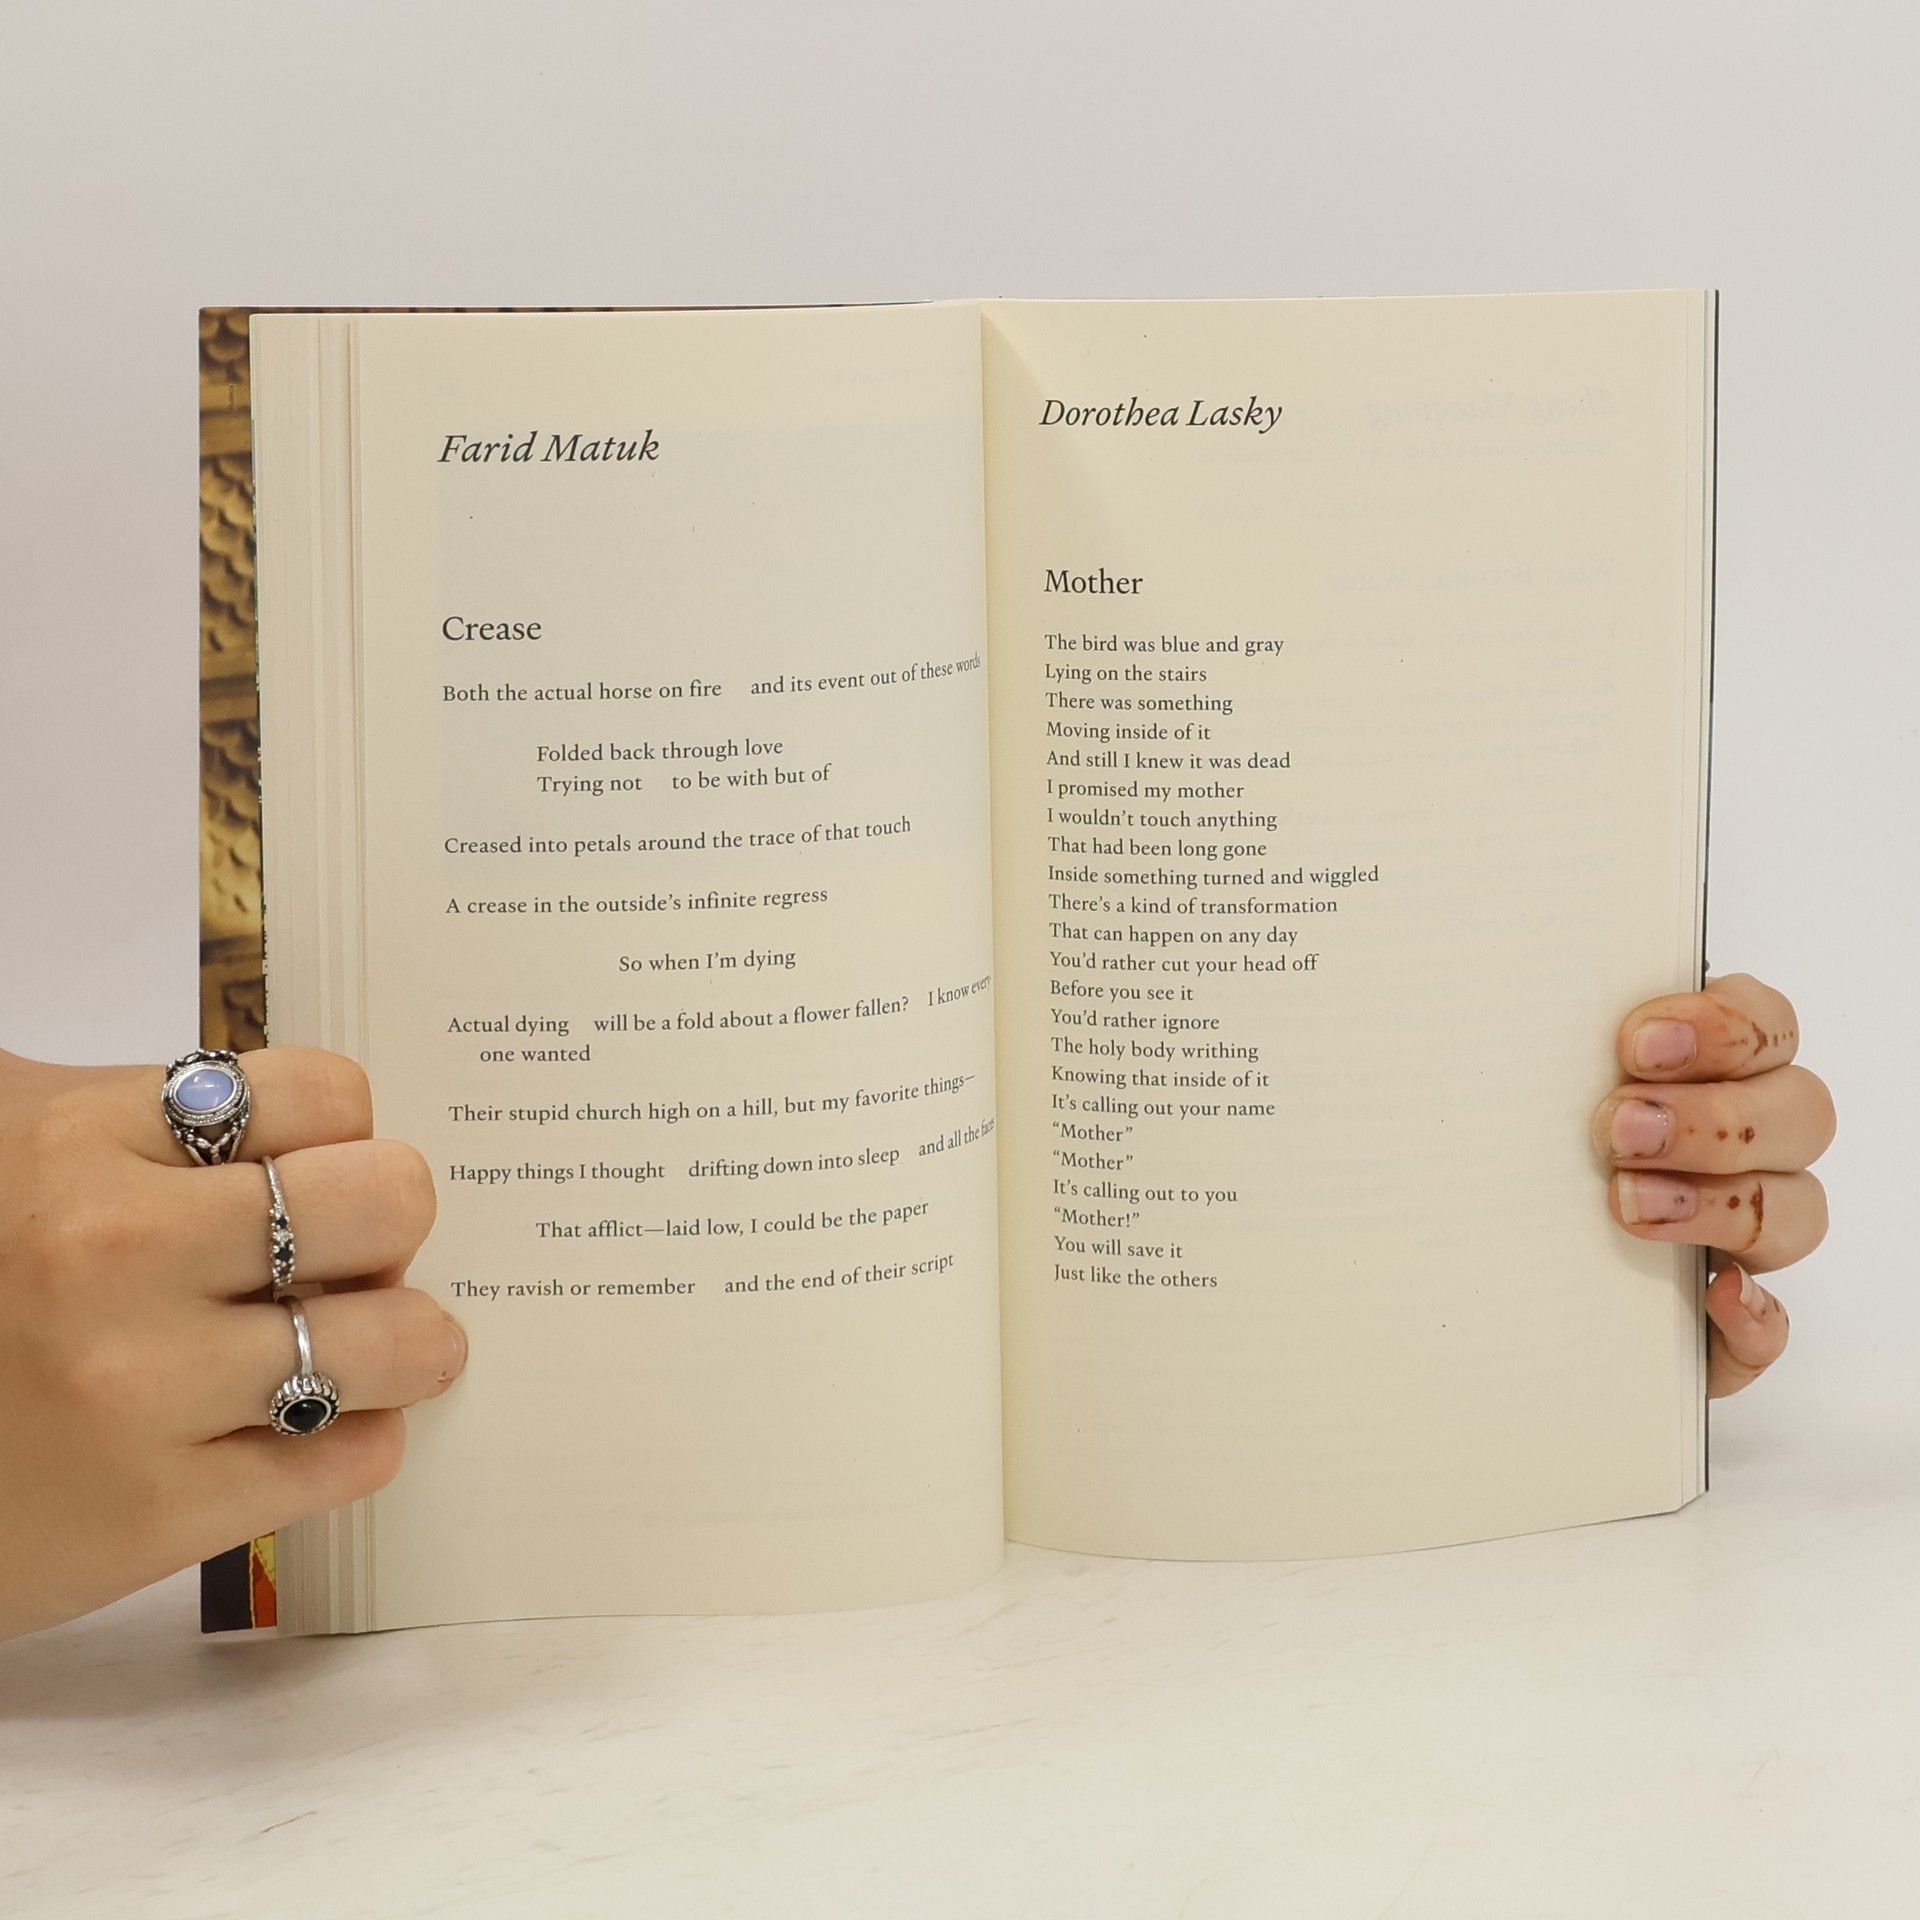 Farid Matuk
Crease
Both the actual horse on fire and its event out of these words
Folded back through love
Trying not to be with but of
Creased into petals around the trace of that touch
A crease in the outside’s infinite regress
So when I’m dying
Actual dying will be a fold about a flower fallen? I know every
one wanted
Their stupid church high on a hill, but my favorite things—
Happy things I thought drifting down into sleep and all the faces
That afflict—laid low, I could be the paper
They ravish or remember and the end of their script
Dorothea Lasky
Mother
The bird was blue and gray
Lying on the stairs
There was something
Moving inside of it
And still I knew it was dead
I promised my mother
I wouldn’t touch anything
That had been long gone
Inside something turned and wiggled
There’s a kind of transformation
That can happen on any day
You’d rather cut your head off
Before you see it
You’d rather ignore
The holy body writhing
Knowing that inside of it
It’s calling out your name
“Mother”
“Mother”
It’s calling out to you
“Mother!”
You will save it
Just like the others